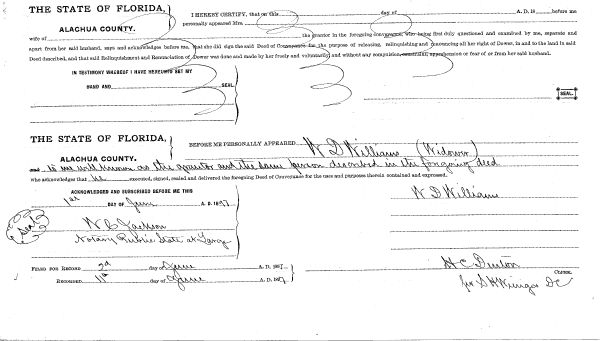 THE STATE OF FLORIDA,
ALACHUA COUNTY.
I HEREBY CERTIFY, that on this day of A. D. 18 before me
personally appeared Mrs.
wife of the grantor in the foregoing conveyance, who being first duly questioned and examined by me, separate and
apart from her said husband, says and acknowledges before me, that she did sign the said Deed of Conveyance for the purpose of releasing, relinquishing and renouncing all her right of Dower, in and to the land in said
Deed described, and that said Relinquishment and Renunciation of Dower was done and made by her freely and voluntarily and without any compulsion, constraint, apprehension or fear of or from her said husband.
IN TESTIMONY WHEREOF I HAVE HEREUNTO SET MY
HAND AND SEAL
SEAL
THE STATE OF FLORIDA,
ALACHUA COUNTY.
BEFORE ME PERSONALLY APPEARED W D Williams (Widower)
and to me well known as the grantor and the same person described in the foregoing deed
who acknowledges that he executed, signed, sealed and delivered the foregoing Deed of Conveyance for the uses and purposes therein contained and expressed.
ACKNOWLEDGED AND SUBSCRIBED BEFORE ME THIS
1st DAY OF June A. D. 1897
W D Williams
Seal
W C Jackson
Notary Public State at Large
FILED FOR RECORD 2d day of June A. D. 1897
RECORDED 11th day of June A. D. 1897
H C Denton
CLERK.
per S H Wienges DC